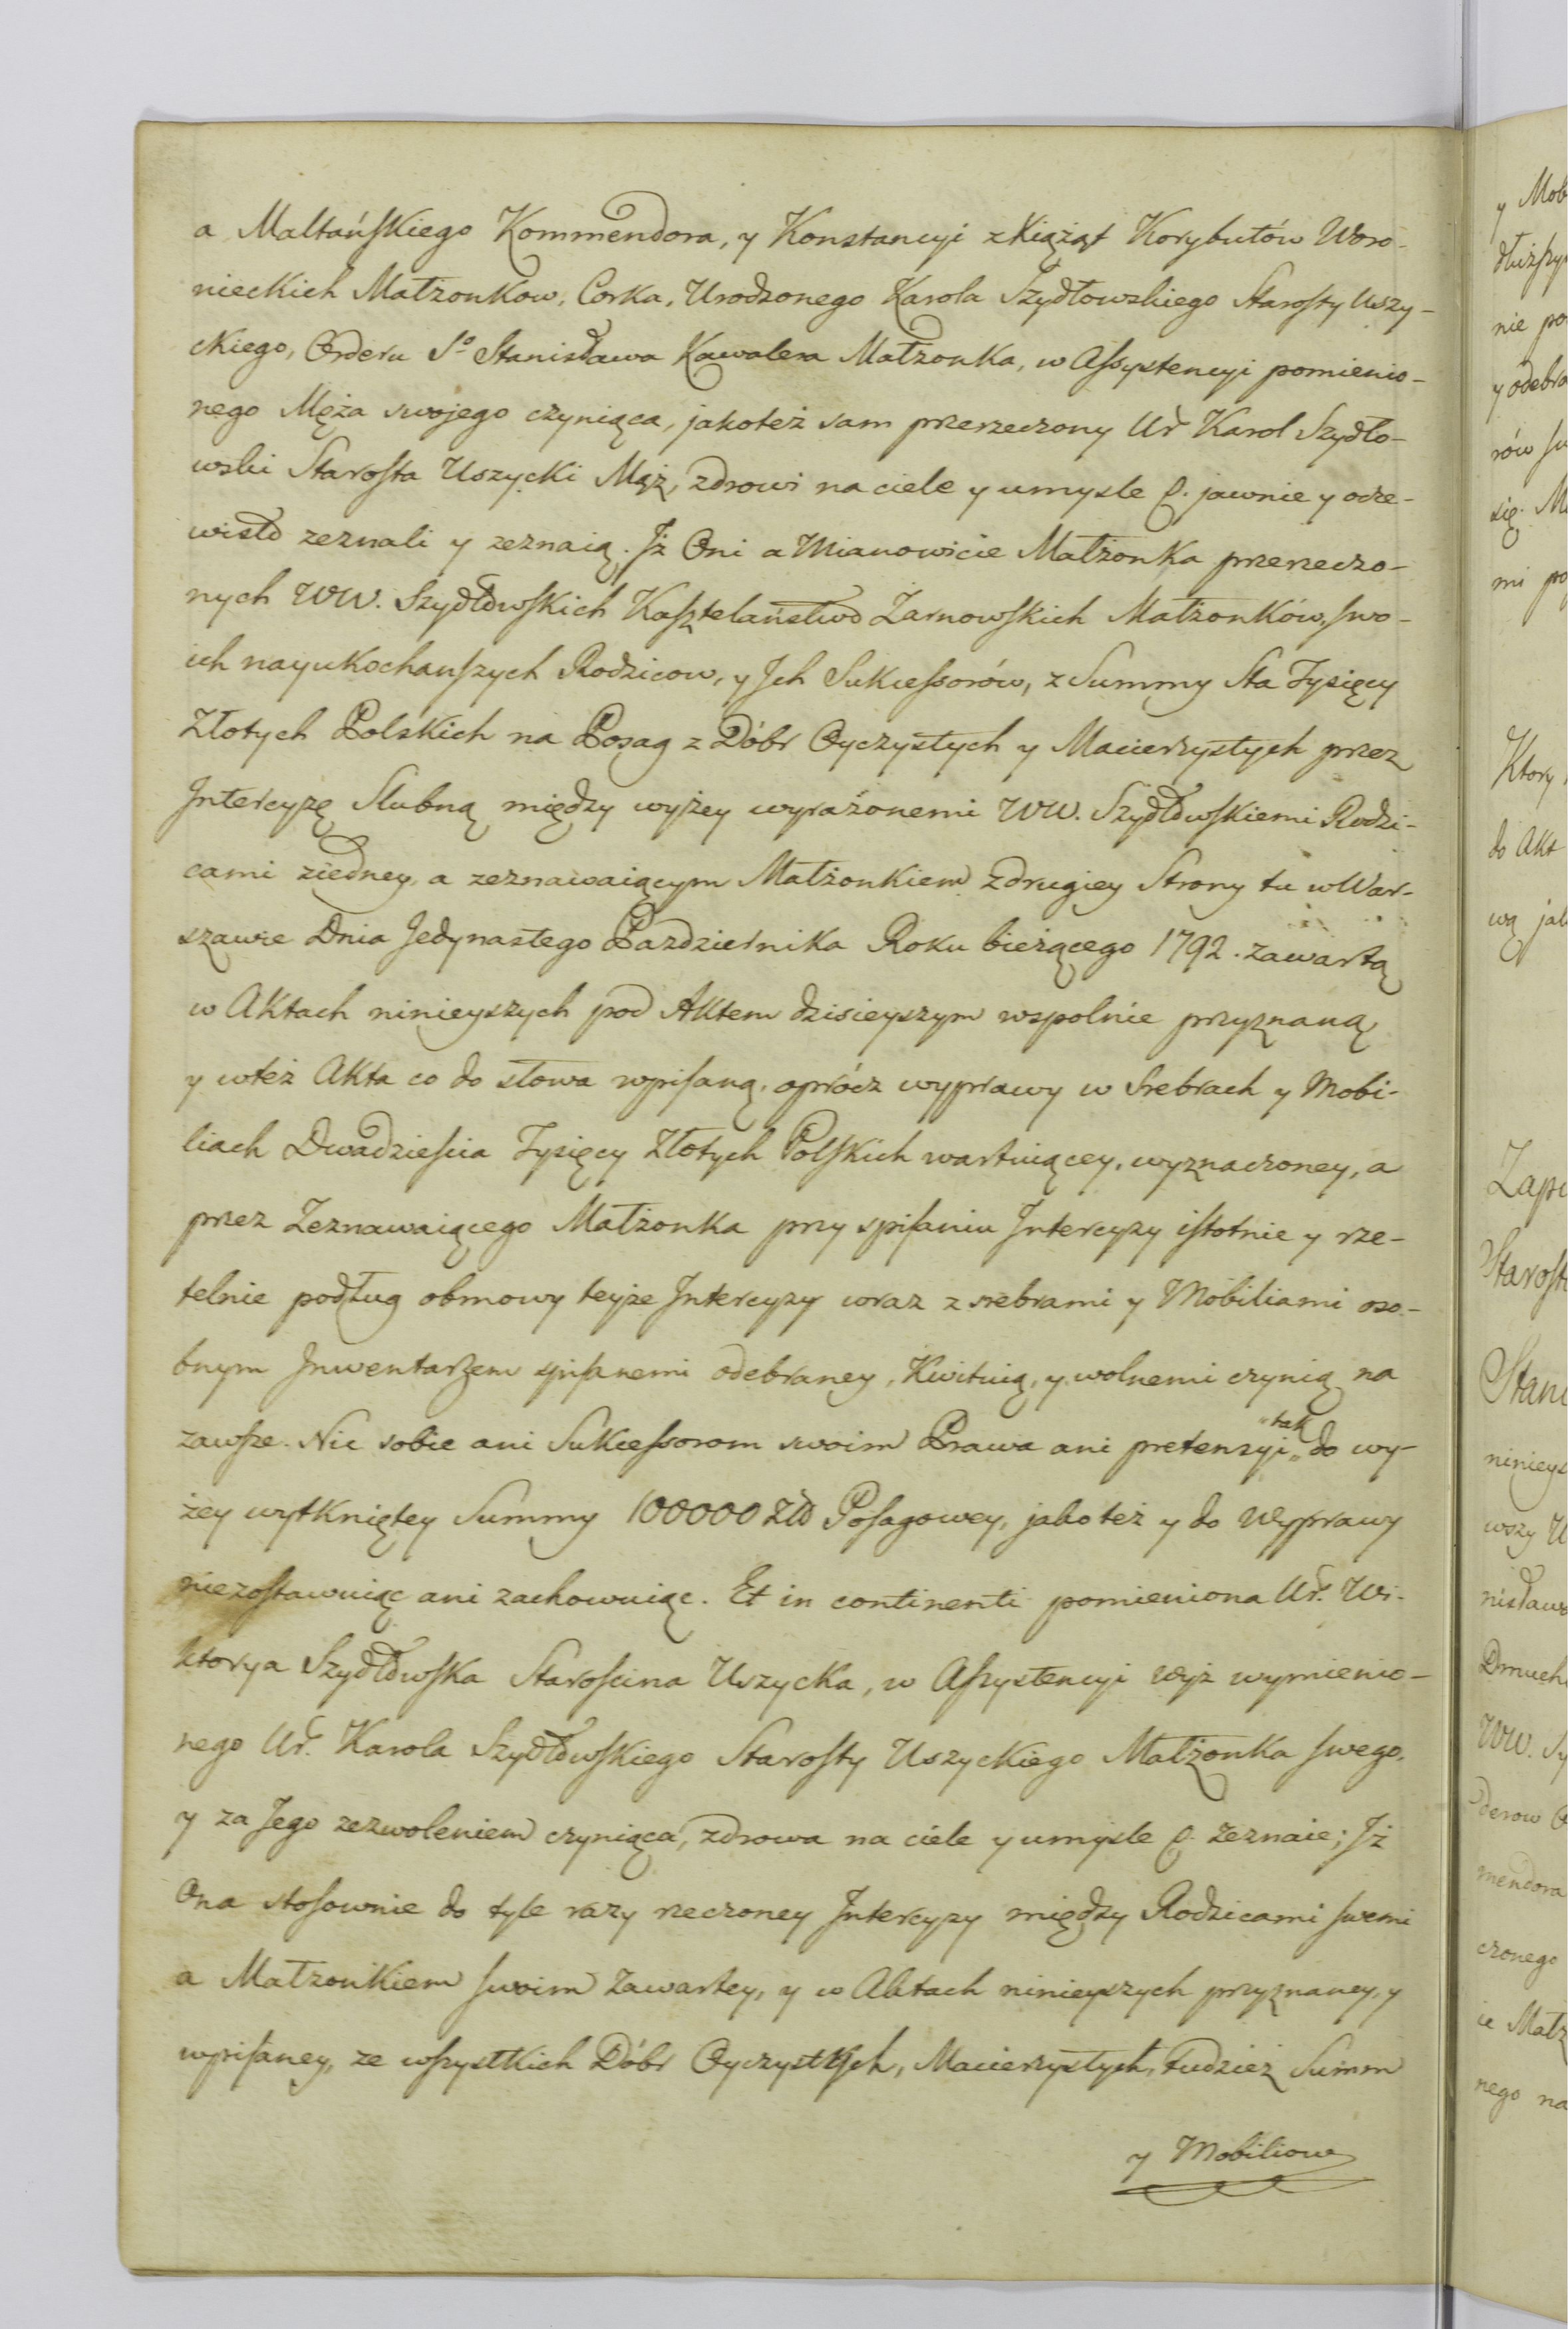 a Maltańskiego Kommendora, y Konstancyi z Xiążąt Korybutów Woro-
nieckich Małżonkow, Corka, Urodzonego Karola Szydłowskiego Starosty Uszy-
ckiego, Orderu Sº Stanisława Kawalera Małżonka, w Assystencyi pomienio-
nego Męża swojego czyniąca, jakoteż sam przerzeczony Ur Karol Szydło-
wski Starosta Uszycki Mąż, zdrowi na ciele y umysle p. jawnie y ocze-
wisto zeznali y zeznaią. Jż Oni a Mianowicie Małżonka przerzeczo-
nych WW. Szydłowskich Kasztelaństwo Żarnowskich Małżonków, swo-
ich nayukochanszych Rodzicow, y Jch Sukcessorów, z Summy Sta Tysięcy
Złotych Polskich na Posag z Dóbr Oyczystych y Macierzystych przez
Jntercyzę Slubną między wyżey wyrażonemi WW. Szydłowskiemi Rodzi-
cami ziedney, a zeznawaiącym Małżonkiem z drugiey Strony tu w War-
szawie Dnia Jedynastego Pazdziernika Roku bieżącego 1792. zawartą
w Aktach ninieyszych pod Aktem dzisieyszym wspolnie przyznaną
y wteż Akta co do słowa wpisaną, oprócz wyprawy w Srebrach y Mobi-
liach Dwadziescia Tysięcy Złotych Polskich wartuiącey, wyznaczoney, a
przez Zeznawaiącego Małżonka przy spisaniu Jntercyzy istotnie y rze-
telnie podług obmowy teyże Jntercyzy wraz z srebrami y Mobiliami oso-
bnym Jnwentarzem spisanemi odebraney, Kwituią, y wolnemi czynią na
zawsze. Nic sobie ani Sukcessorom swoim Prawa ani pretensyi „tak„ do wy-
żey wytkniętey Summy 100000 Zło Posagowey, jako też y do Wyprawy
niezostawuiąc ani zachowuiąc. Et in continenti pomieniona Ur. Wi-
ktorya Szydłowska Starościna Uszycka, w Assystencyi wyż wymienio-
nego Ur. Karola Szydłowskiego Starosty Uszyckiego Małżonka swego,
y za Jego zezwoleniem czyniąca, zdrowa na ciele y umysle p. zeznaie; Jż
Ona stosownie do tyle razy rzeczoney Jntercyzy między Rodzicami swemi
a Małżonkiem swoim zawartey, y w Aktach ninieyszych przyznaney, y
wpisaney, ze wszystkich Dóbr Oyczystych, Macierzystych, tudzież Summ
y Mobiliow